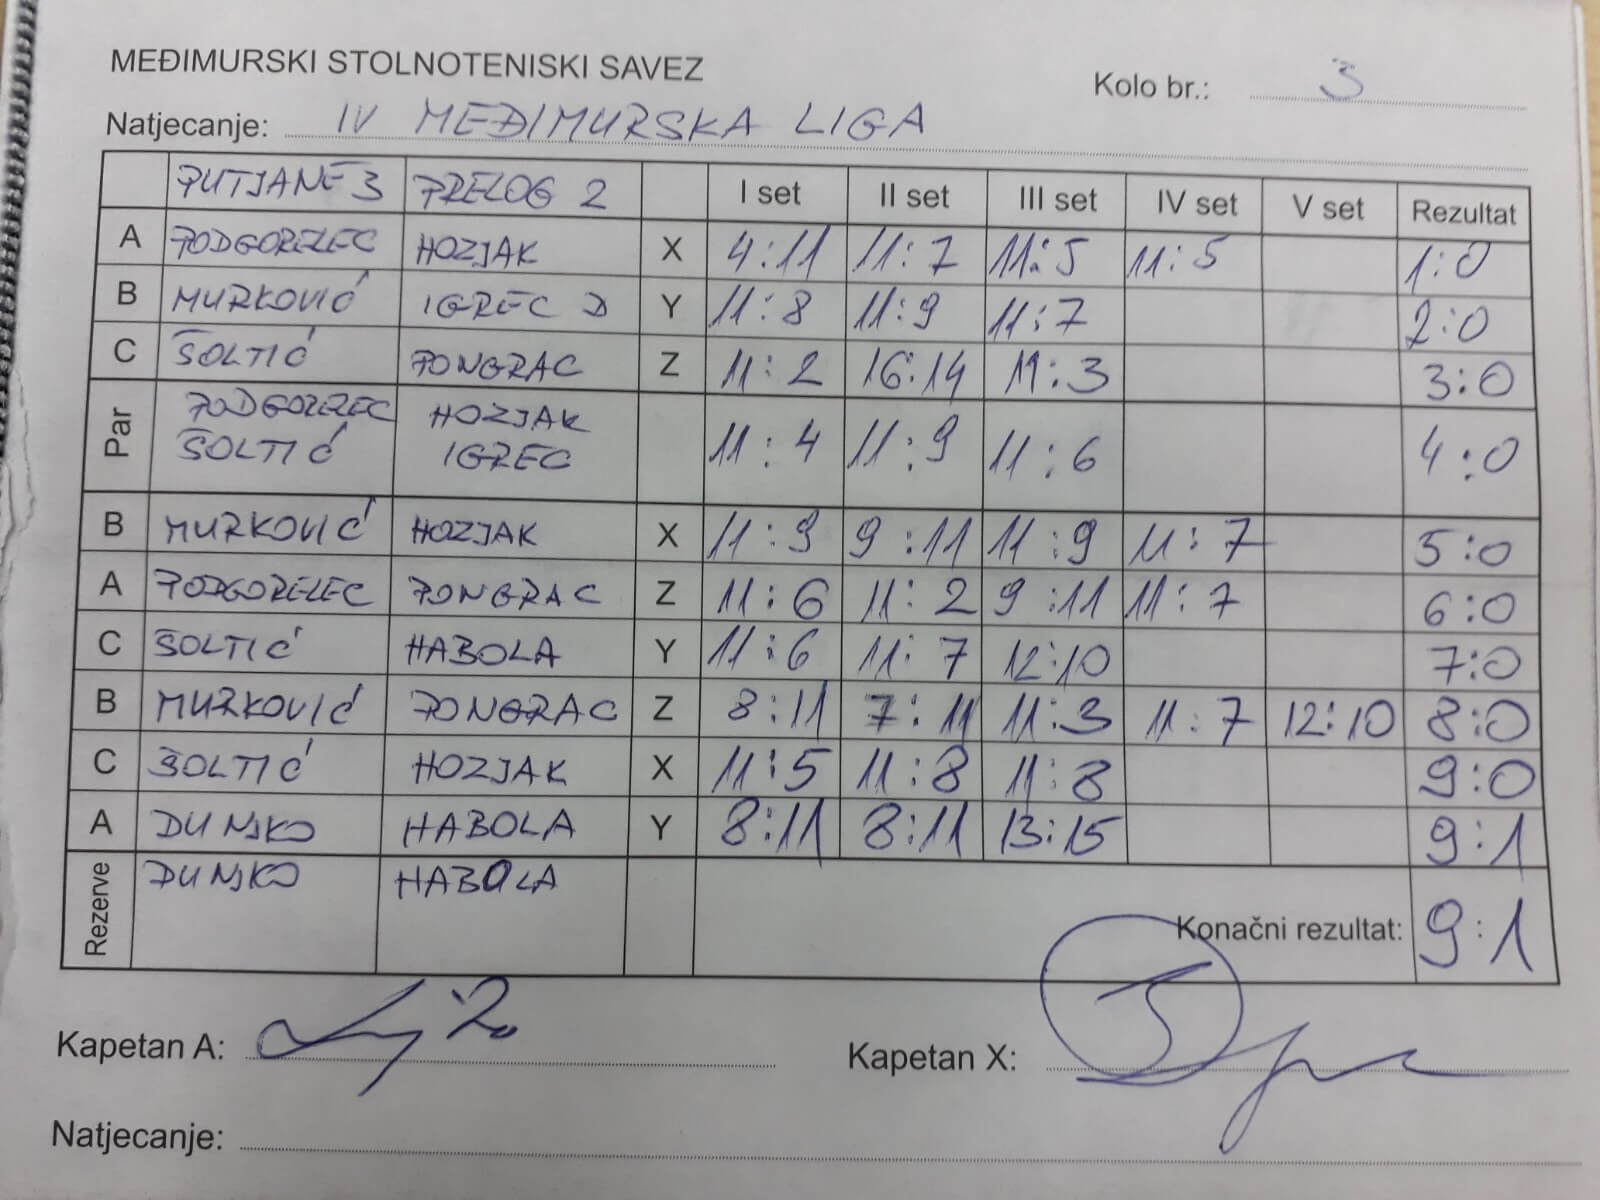 MEĐIMURSKI STOLNOTENISKI SAVEZ
Kolo br.: 3
Natjecanje: IV MEĐIMURSKA LIGA
PUTJANE 3 PRELOG 2 I set II set III set IV set V set Rezultat
A PODGORELEC HOZJAK X 4:11 11:7 11:5 11:5 1:0
B MURKOVIĆ IGREC D Y 11:8 11:9 11:7 2:0
C ŠOLTIĆ PONGRAC Z 11:2 16:14 11:3 3:0
Par PODGORELEC HOZJAK 11:4 11:9 11:6 4:0
ŠOLTIĆ IGREC
B MURKOVIĆ HOZJAK X 11:9 9:11 11:9 11:7 5:0
A PODGORELEC PONGRAC Z 11:6 11:2 9:11 11:7 6:0
C ŠOLTIĆ HABOLA Y 11:6 11:7 12:10 7:0
B MURKOVIĆ PONGRAC Z 8:11 7:11 11:3 11:7 12:10 8:0
C ŠOLTIĆ HOZJAK X 11:5 11:8 11:8 9:0
A DUNJKO HABOLA Y 8:11 8:11 13:15 9:1
Rezerve DUNJKO HABOLA
Konačni rezultat: 9:1
Kapetan A:
Kapetan X:
Natjecanje: